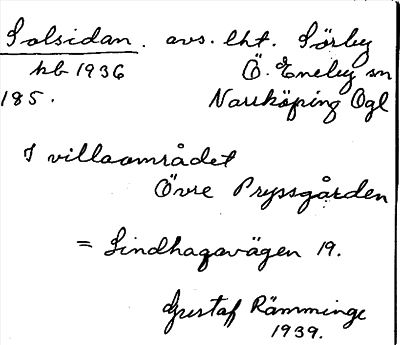 Solsidan. avs. lht. Sörby
kb 1936 Ö. Eneby sn
185. Norrköping Ögl
I villaområdet
Övre Pryssgården
= Lindhagavägen 19.
Gustaf Rämminge
1939.